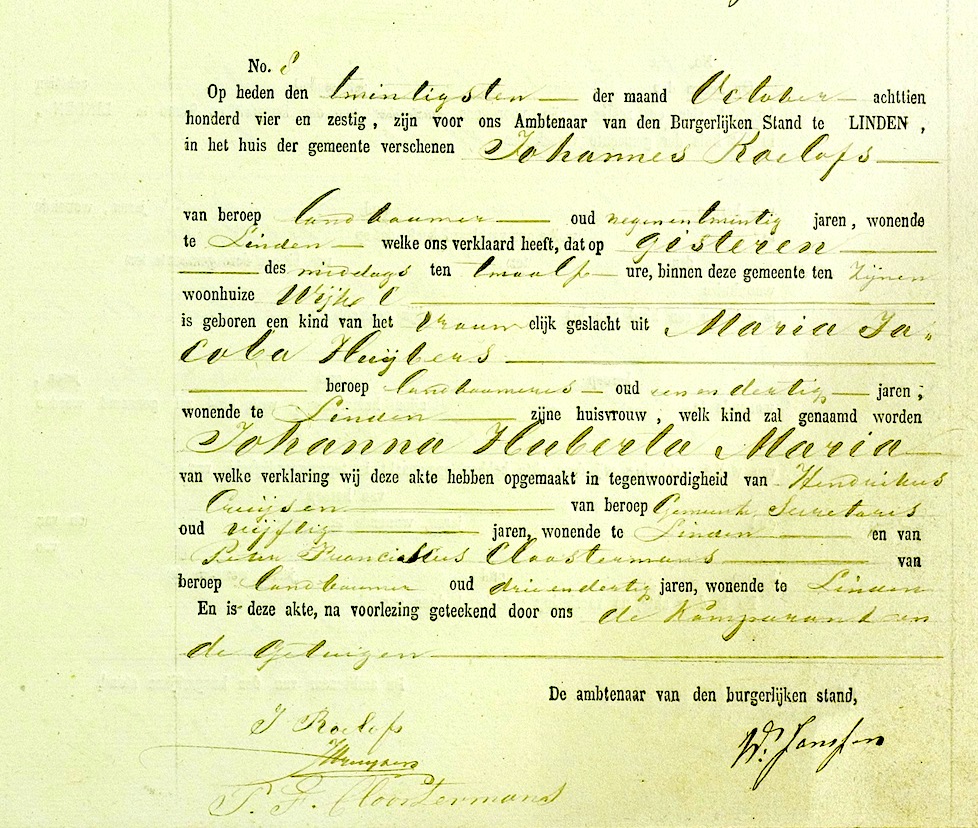 No. 8
Op heden den twintigsten der maand October achttien
honderd vier en zestig, zijn voor ons Ambtenaar van den Burgerlijken Stand te LINDEN,
in het huis der gemeente verschenen Johannes Roelofs
van beroep landbouwer oud negenentwintig jaren, wonende
te Linden welke ons verklaard heeft, dat op gisteren
des middags ten twaalf ure, binnen deze gemeente ten zijnen
woonhuize Wijk
is geboren een kind van het vrouw elijk geslacht uit Maria Ja-
coba Huijbers
beroep landbouweres oud een en dertig jaren,
wonende te Linden zijne huisvrouw, welk kind zal genaamd worden
Johanna Huberta Maria
van welke verklaring wij deze akte hebben opgemaakt in tegenwoordigheid van Hendrikus
Cruijsen van beroep Gemeente Secretaris
oud vijftig jaren, wonende te Linden en van
Peter Franciskus Cloostermans van
beroep landbouwer oud drieendertig jaren, wonende te Linden
En is deze akte, na voorlezing geteekend door ons de Komparant en
de Getuigen
De ambtenaar van den burgerlijken stand,
J Roelofs
W. Janssen
P. F. Cloostermans